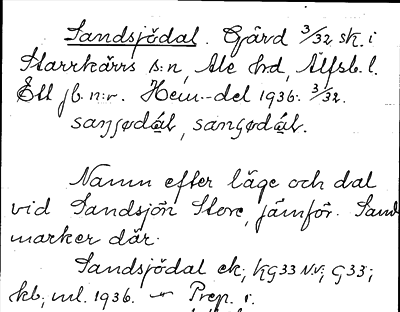 Sandsjödal. Gård 3/32 sk. i
Starrkärrs s:n, Ale hd, Älfsb. l.
Ett jb. n:r. Hem.-del 1936. 3/32.
Namn efter läge och dal
vid Sandsjön Store, jämför. Sand
marker där.
Sandsjödal ek; KG33 NV; G33;
kb, ml. 1936. Prep. i.